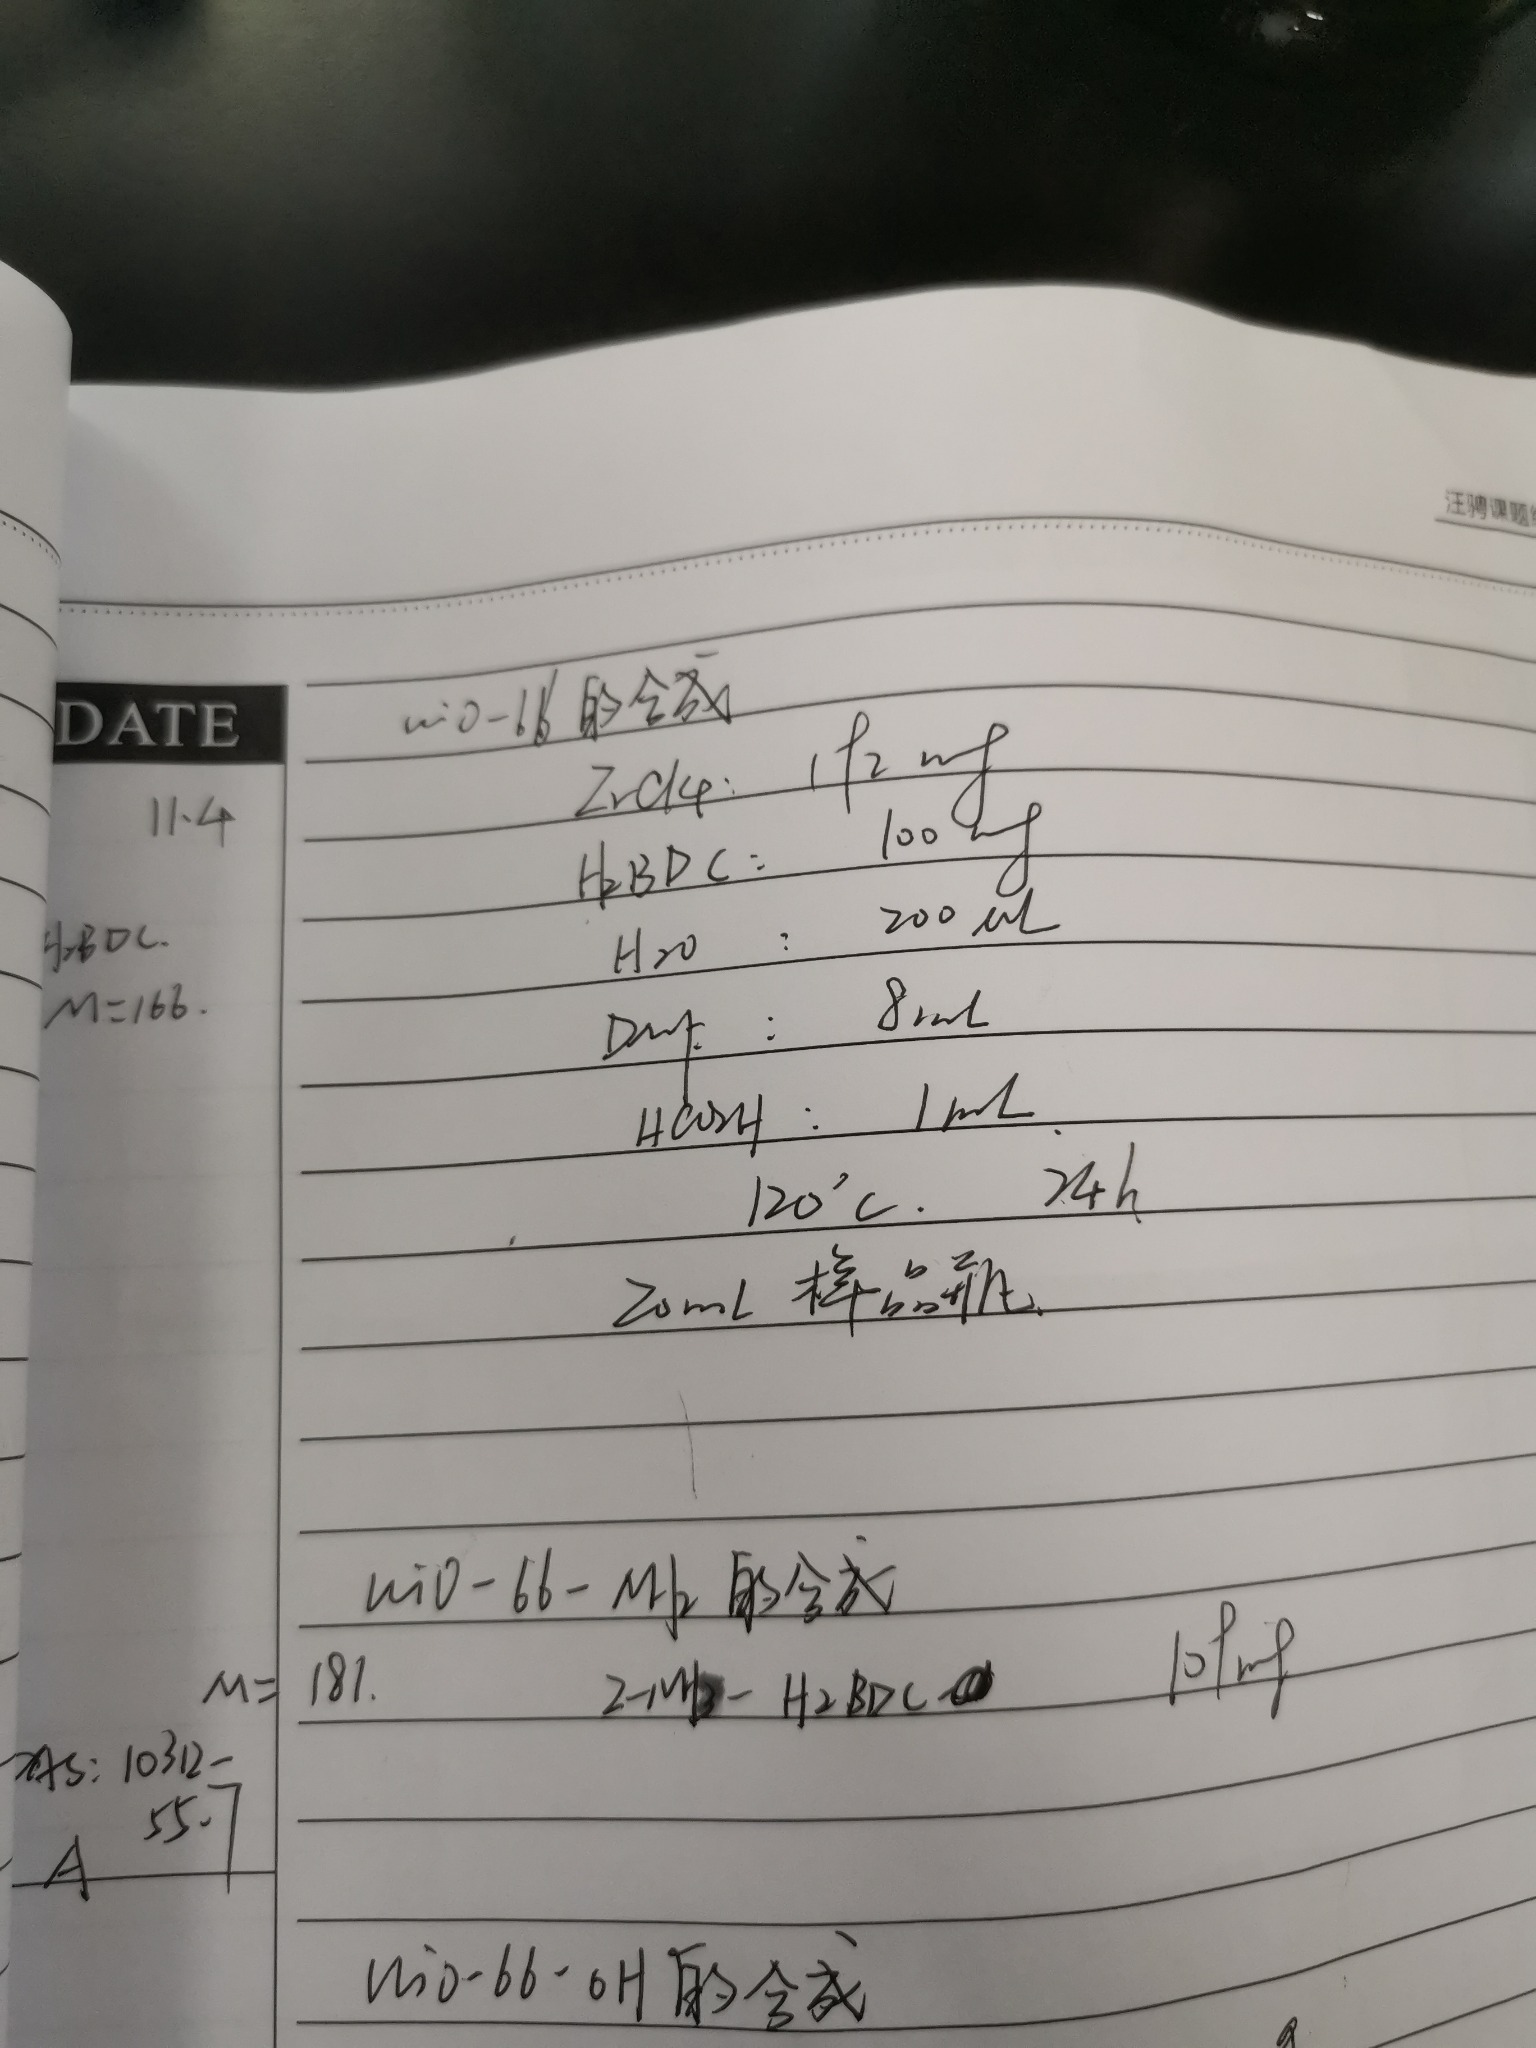 汪骋课题组
DATE
11.4
UiO-66的合成
ZrCl4: 192 mg
H2BDC: 100 mg
H2BDC.
M=166.
H2O : 200 uL
DMF : 8mL
HCO2H : 1mL
120°C. 24h
20mL 样品瓶.
UiO-66-NH2 的合成
M= 181. 2-NH2- H2BDC 109mg
CAS: 10312-
55-7
A
UiO-66-OH 的合成